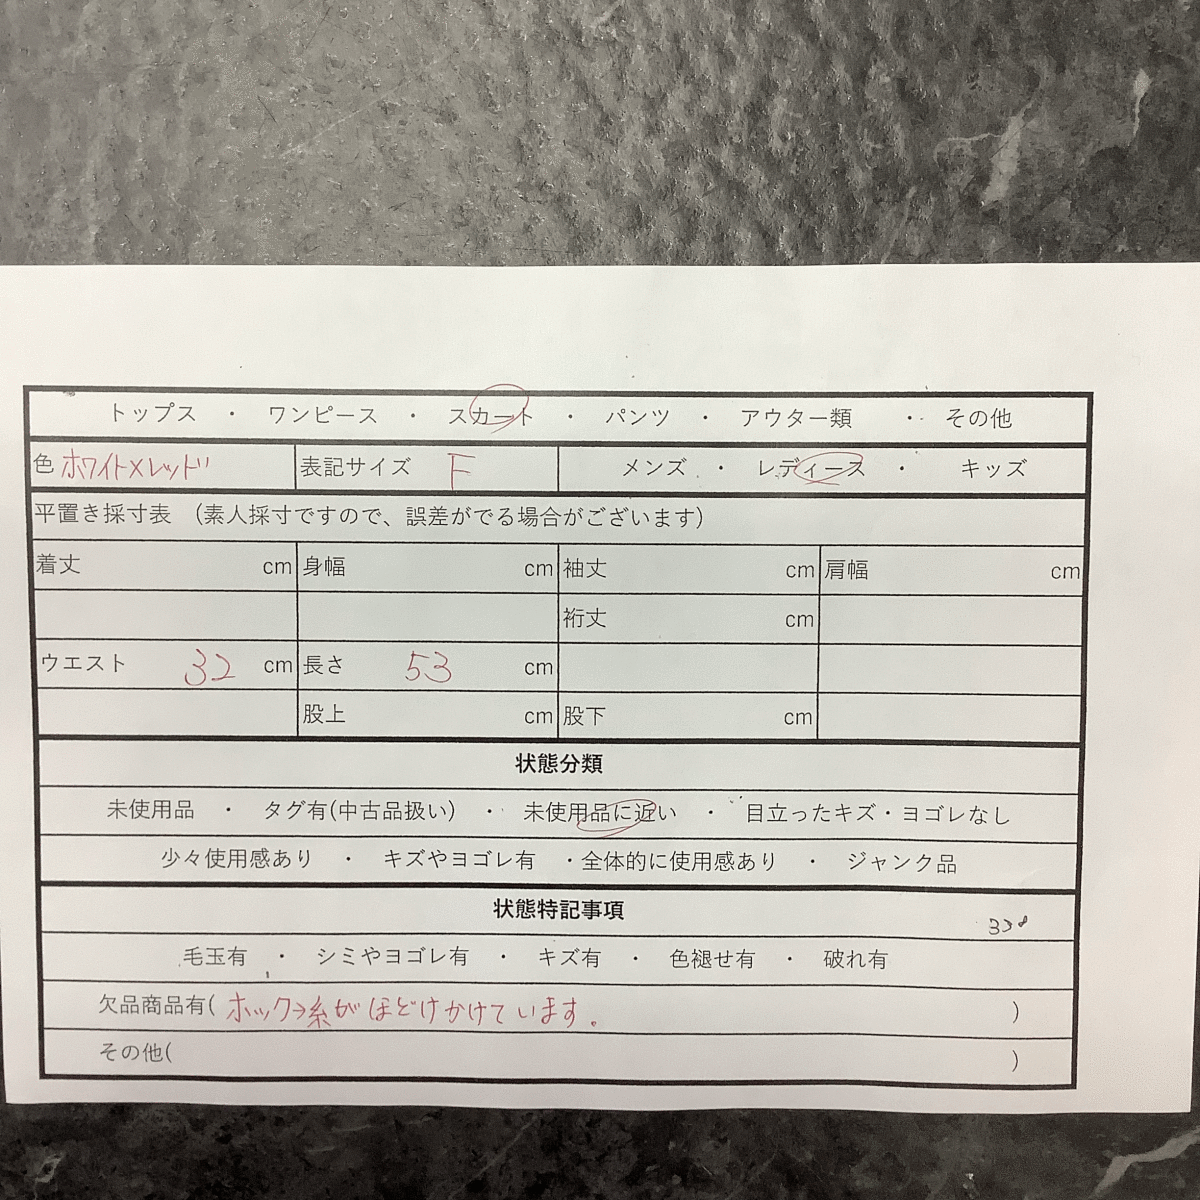 トップス ・ ワンピース ・ スカート ・ パンツ ・ アウター類 ・ その他
色 ホワイト×レッド 表記サイズ F メンズ ・ レディース ・ キッズ
平置き採寸表 （素人採寸ですので、誤差がでる場合がございます）
着丈 cm 身幅 cm 袖丈 cm 肩幅 cm
裄丈 cm
ウエスト 32 cm 長さ 53 cm
股上 cm 股下 cm
状態分類
未使用品 ・ タグ有(中古品扱い) ・ 未使用品に近い ・ 目立ったキズ・ヨゴレなし
少々使用感あり ・ キズやヨゴレ有 ・全体的に使用感あり ・ ジャンク品
状態特記事項
毛玉有 ・ シミやヨゴレ有 ・ キズ有 ・ 色褪せ有 ・ 破れ有
欠品商品有( ホック→糸がほどけかけています。 )
その他( )